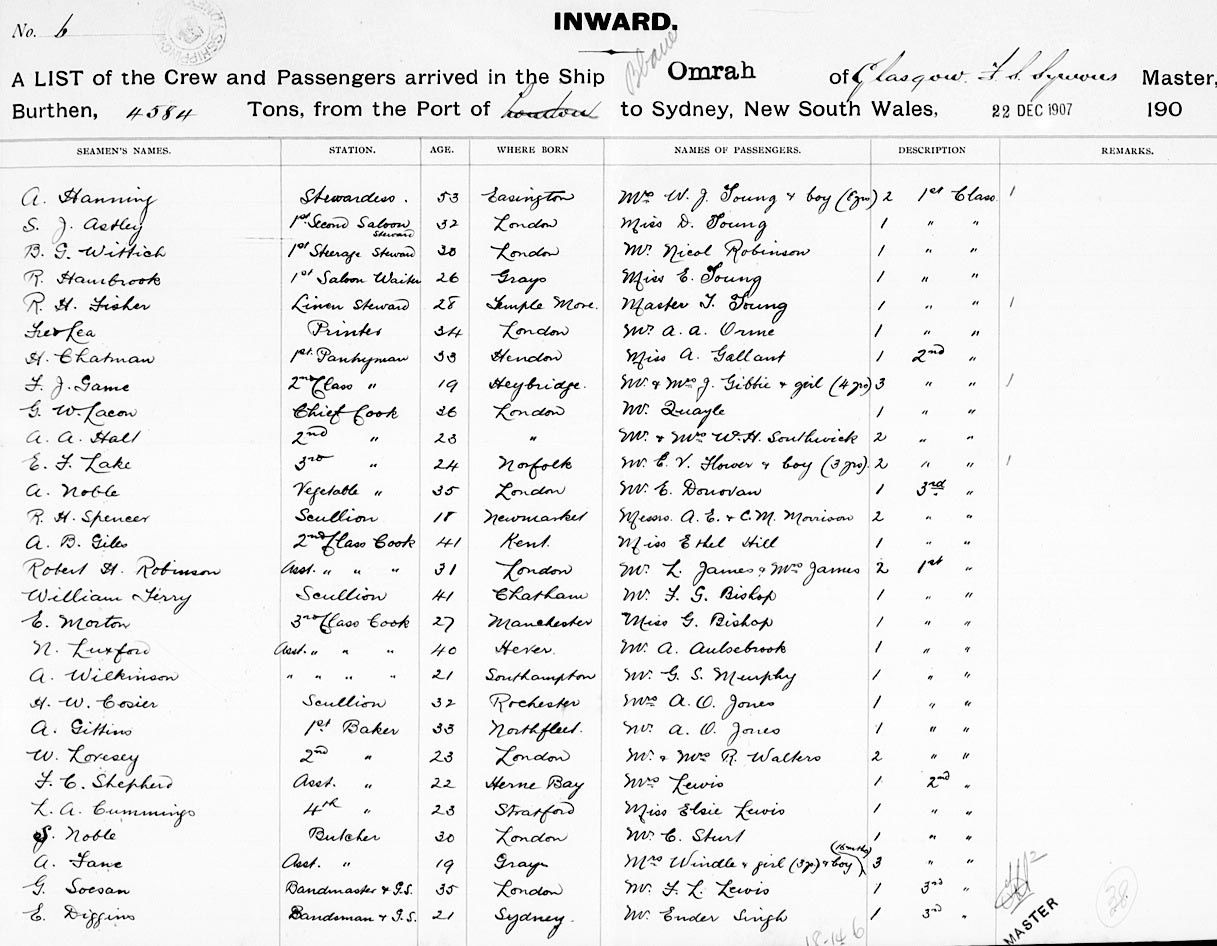 No. 6
INWARD.
A LIST of the Crew and Passengers arrived in the Ship Omrah of Glasgow F. S. Symons Master,
Burthen, 4584 Tons, from the Port of London to Sydney, New South Wales, 22 DEC 1907 190
SEAMEN'S NAMES. STATION. AGE. WHERE BORN NAMES OF PASSENGERS. DESCRIPTION REMARKS.
A. Hanning Stewardess. 53 Easington Mrs W. J. Young & boy (8yrs) 2 1st Class 1
S. J. Astley 1st Second Saloon Steward 32 London Miss D. Young 1 " "
B. G. Wittich 1st Steerage Steward 30 London Mr. Nicol Robinson 1 " "
R. Hambrook 1st Saloon Waiter 26 Grays Miss E. Young 1 " "
R. H. Fisher Linen Steward 28 Temple More. Master T. Young 1 " " 1
Fred Lea Printer 34 London Mr. A. A. Orme 1 " "
H. Chatman 1st Pantryman 33 Hendon Miss A. Gallant 1 2nd "
F. J. Game 2nd Class " 19 Heybridge. Mr. & Mrs J. Gibbie & girl (4 yrs) 3 " " 1
G. W. Lacon Chief Cook 36 London Mr. Quayle 1 " "
A. A. Hall 2nd " 23 " Mr. & Mrs W. H. Southwick 2 " "
E. F. Lake 3rd " 24 Norfolk Mr. E. V. Flower & boy (3 yrs). 2 " " 1
A. Noble Vegetable " 35 London Mr. E. Donovan 1 3rd "
R. H. Spencer Scullion 18 Newmarket Messrs. A. E. & C. M. Morrison 2 " "
A. B. Giles 2nd Class Cook 41 Kent. Miss Ethel Hill 1 " "
Robert H. Robinson Asst. " " " 31 London Mr. L. James & Mrs James 2 1st "
William Terry Scullion 41 Chatham Mr. F. G. Bishop 1 " "
E. Morton 3rd Class Cook 27 Manchester Miss G. Bishop 1 " "
N. Luxford Asst. " " " 40 Hever. Mr. A. Aulsebrook 1 " "
A. Wilkinson " " " " 21 Southampton Mr. G. S. Murphy 1 " "
H. W. Cosier Scullion 32 Rochester Mrs A. O. Jones 1 " "
A. Gittins 1st Baker 33 Northfleet. Mr. A. O. Jones 1 " "
W. Lovesey 2nd " 23 London Mr. & Mrs R. Walters 2 " "
F. C. Shepherd Asst. " 22 Herne Bay Mrs Lewis 1 2nd "
L. A. Cummings 4th " 23 Stratford Miss Elsie Lewis 1 " "
J. Noble Butcher 30 London Mr. C. Sturt 1 " "
A. Fane Asst. " 19 Grays Mrs Windle & girl (3 yrs) & boy (16 mths) 3 " "
G. Socsan Bandmaster & G.S. 35 London Mr. F. L. Lewis 1 3rd "
E. Diggins Bandsman & G.S. 21 Sydney. Mr. Ender Singh 1 3rd "
MASTER
38
18-146